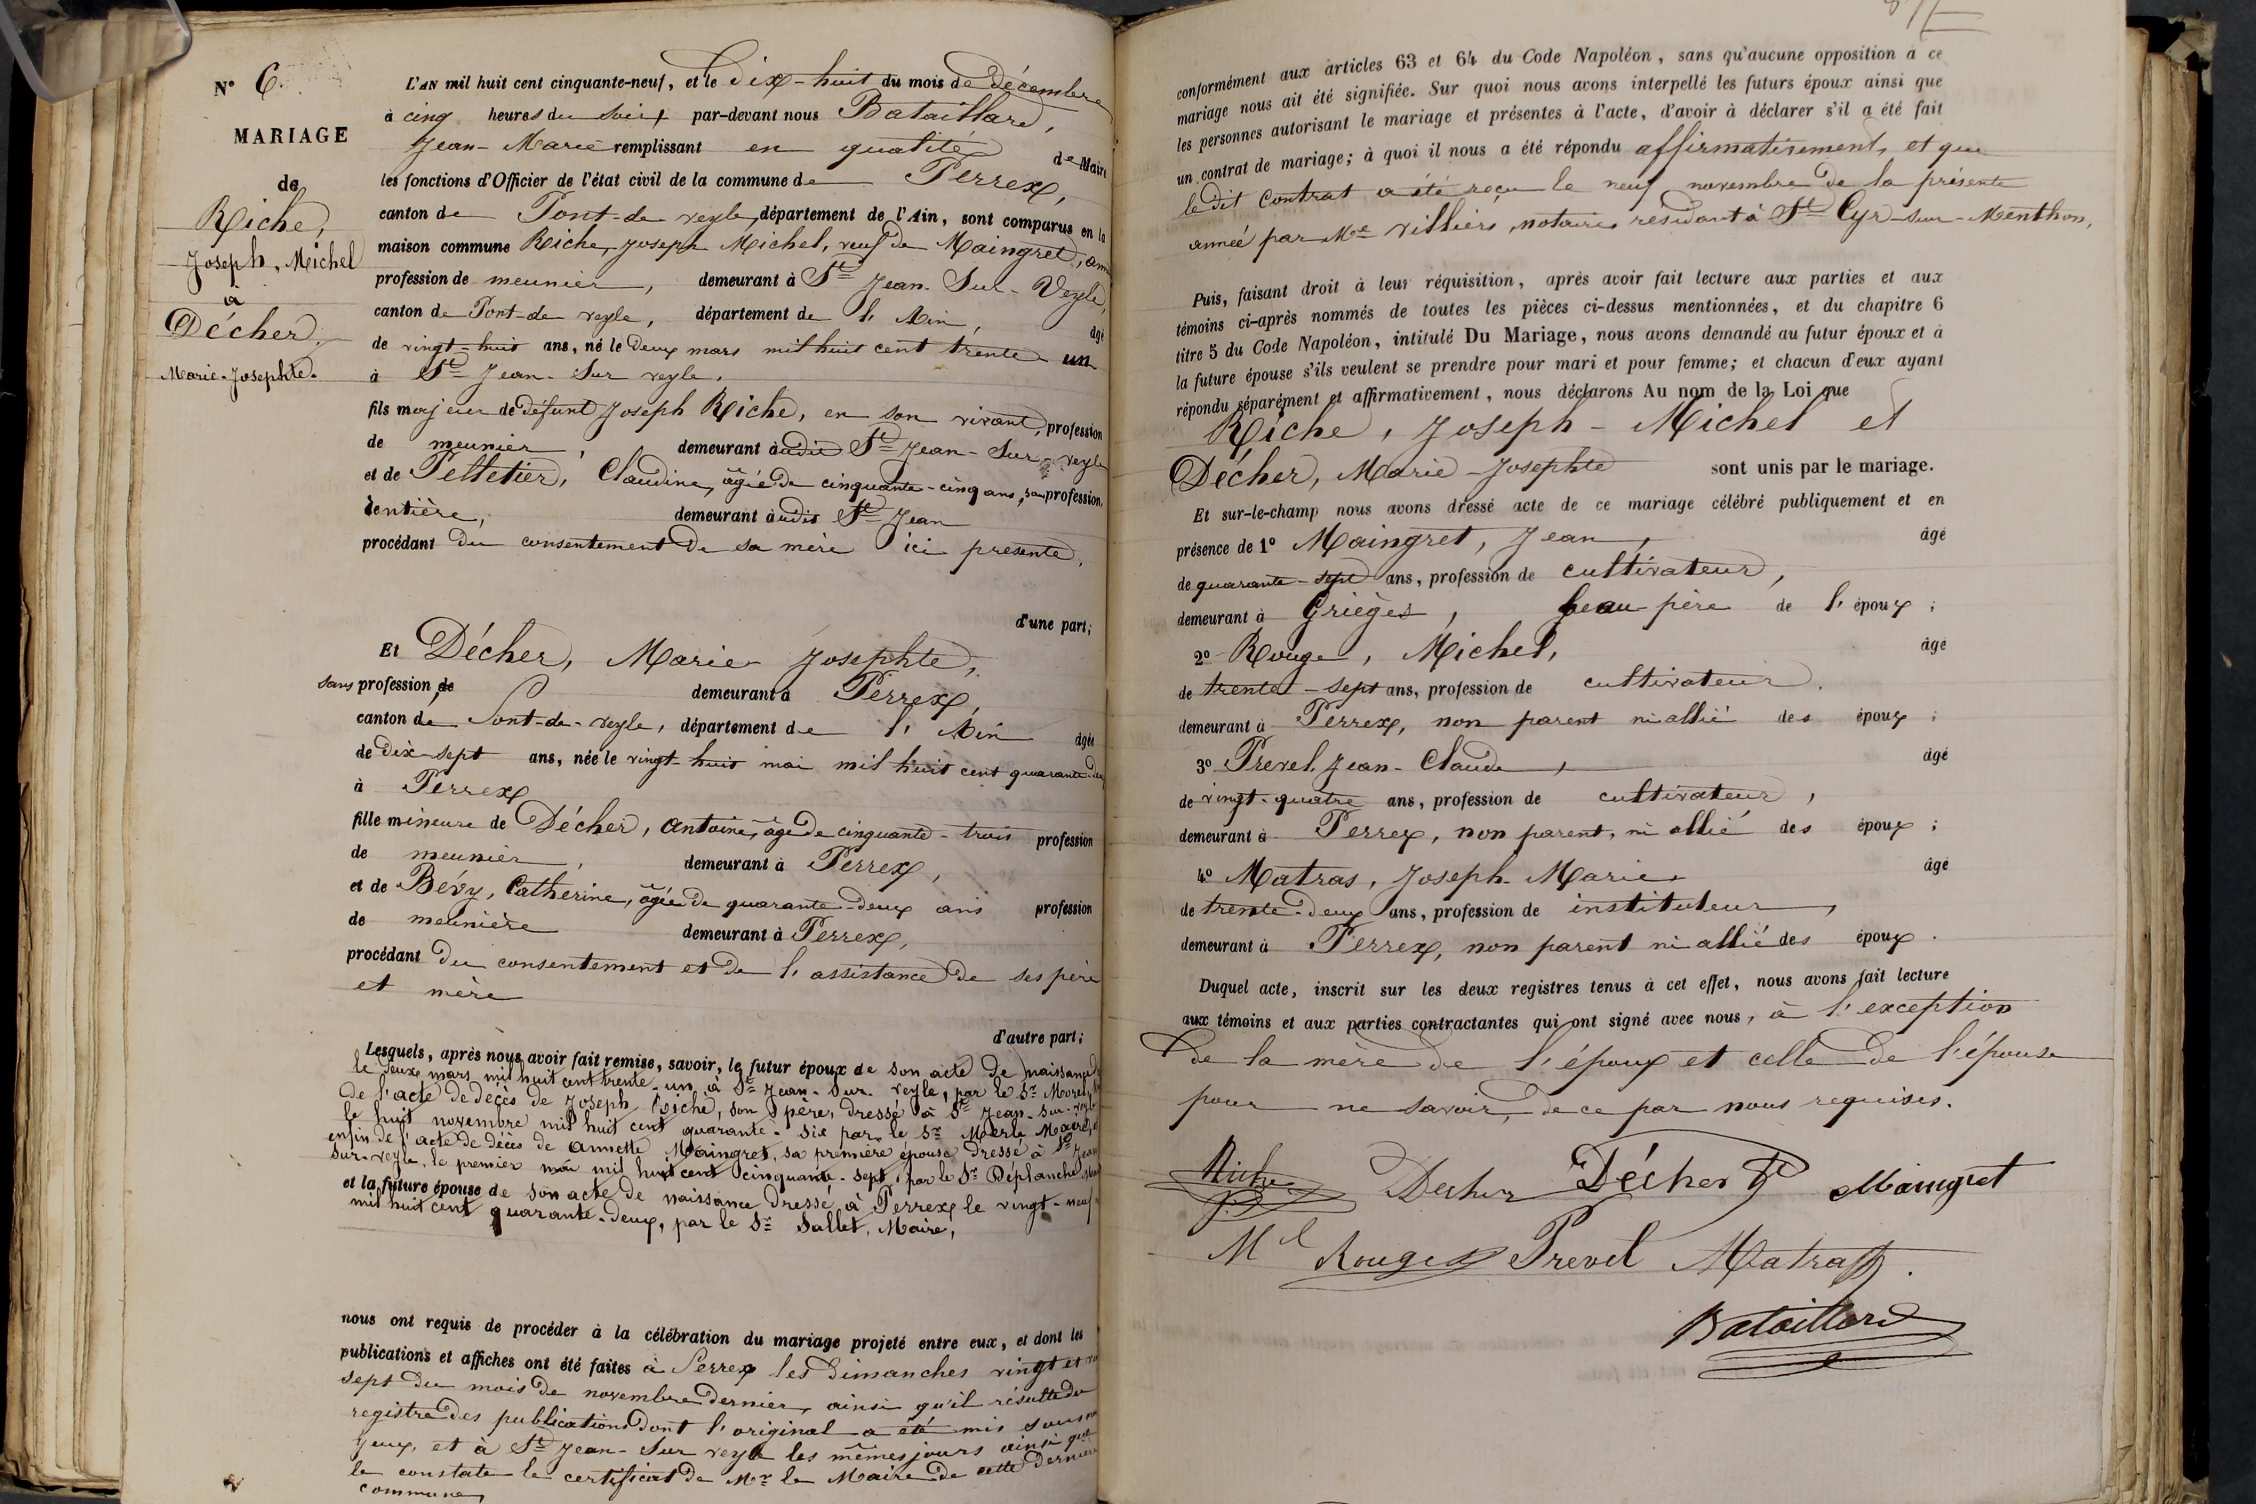 N° 6.
MARIAGE
de
Riche,
Joseph, Michel
à
Décher,
Marie-Josephte.
L'AN mil huit cent cinquante-neuf, et le Dix-huit du mois de Décembre
à cinq heures du soir, par-devant nous Bataillard,
Jean-Marie remplissant en qualité de Maire
les fonctions d'Officier de l'état civil de la commune de Perrex,
canton de Pont-de veyle, département de l'Ain, sont comparus en la
maison commune Riche, Joseph Michel, veuf de Maingret,
profession de meunier, demeurant à St Jean-Sur-Veyle,
canton de Pont-de veyle, département de l'Ain, âgé
de vingt-huit ans, né le deux mars mil huit cent trente un
à St Jean-Sur veyle.
fils majeur de défunt Joseph Riche, en son vivant, profession
de meunier, demeurant audit St Jean-Sur-veyle
et de Pelletier, Claudine, âgée de cinquante-cinq ans, sa profession
rentière, demeurant audit St Jean
procédant du consentement de sa mère ici présente,
d'une part;
Et Décher, Marie-Josephte,
sans profession de demeurant à Perrex,
canton de Pont-de-veyle, département de l'Ain âgée
de dix-sept ans, née le vingt-huit mai mil huit cent quarante-deux
à Perrex
fille mineure de Décher, Antoine, âgé de cinquante-trois profession
de meunier, demeurant à Perrex,
et de Bévy, Catherine, âgée de quarante-deux ans profession
de meunière demeurant à Perrex,
procédant du consentement et de l'assistance de ses père
et mère
d'autre part;
Lesquels, après nous avoir fait remise, savoir, le futur époux de son acte de naissance
le deux mars mil huit cent trente-un, à St Jean-Sur-veyle, par le Sr
de l'acte de décès de Joseph Riche, son père, dressé à St Jean-Sur-veyle
le huit novembre mil huit cent quarante-six par le Sr Merle Maire,
enfin de l'acte de décès de Annette Maingret, sa première épouse dressé à St Jean
Sur-veyle, le premier mai mil huit cent cinquante-sept, par le Sr Déplanche
et la future épouse de son acte de naissance dressé à Perrex le vingt-neuf
mil huit cent quarante-deux, par le Sr Sallet, Maire,
nous ont requis de procéder à la célébration du mariage projeté entre eux, et dont les
publications et affiches ont été faites à Perrex les dimanches vingt et
sept du mois de novembre dernier, ainsi qu'il résulte du
registre des publications dont l'original a été mis sous nos
yeux, et à St Jean-Sur veyle les mêmes jours ainsi que
le constate le certificat de Mr le Maire de cette dernière
commune,
conformément aux articles 63 et 64 du Code Napoléon, sans qu'aucune opposition à ce
mariage nous ait été signifiée. Sur quoi nous avons interpellé les futurs époux ainsi que
les personnes autorisant le mariage et présentes à l'acte, d'avoir à déclarer s'il a été fait
un contrat de mariage; à quoi il nous a été répondu affirmativement, et que
le dit Contrat a été reçu le neuf novembre de la présente
année par Me Villiers, notaire résidant à St Cyr-sur-Menthon,
Puis, faisant droit à leur réquisition, après avoir fait lecture aux parties et aux
témoins ci-après nommés de toutes les pièces ci-dessus mentionnées, et du chapitre 6
titre 5 du Code Napoléon, intitulé Du Mariage, nous avons demandé au futur époux et à
la future épouse s'ils veulent se prendre pour mari et pour femme; et chacun d'eux ayant
répondu séparément et affirmativement, nous déclarons Au nom de la Loi que
Riche, Joseph-Michel et
Décher, Marie-Josephte sont unis par le mariage.
Et sur-le-champ nous avons dressé acte de ce mariage célébré publiquement et en
présence de 1° Maingret, Jean, âgé
de quarante-sept ans, profession de cultivateur,
demeurant à Grièges, beau père de l'époux;
2° Rouge, Michel, âgé
de trente-sept ans, profession de cultivateur.
demeurant à Perrex, non parent ni allié des époux;
3° Prevel, Jean-Claude, âgé
de vingt-quatre ans, profession de cultivateur,
demeurant à Perrex, non parent, ni allié des époux;
4° Matras, Joseph-Marie, âgé
de trente-deux ans, profession de instituteur,
demeurant à Perrex, non parent ni allié des époux.
Duquel acte, inscrit sur les deux registres tenus à cet effet, nous avons fait lecture
aux témoins et aux parties contractantes qui ont signé avec nous, à l'exception
de la mère de l'époux et celle de l'épouse
pour ne savoir, de ce par nous requises.
Riche Decher Décher Maingret
Ml Rouge Prevel Matras
Bataillard